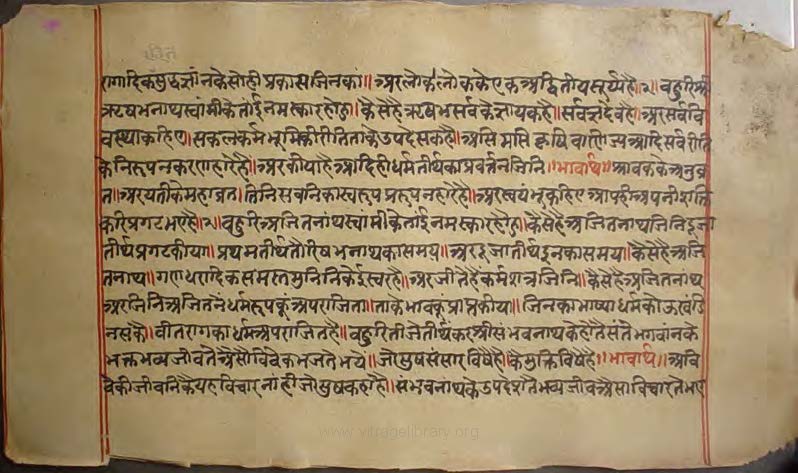 रागादिक सुद्धज्ञानके सोही प्रकास जिनका॥ अर लोकालोकके एक अद्वितीय सूर्य है॥२॥ बहुरि श्री
ऋषभनाथ स्वामीके ताई नमस्कार होहु॥ कैसे है ऋषभ सर्वके ज्ञायक है॥ सर्वज्ञदेव है॥ अर सर्व वि
वस्थाकहिए॥ सकल कर्मभूमिकी रीति ताके उपदेसक है॥ असि मसि कृषि वाणिज्य आदि सर्व रीति
के निरूपन करणहारे है॥ अर कीया है आदि ही धर्मतीर्थका प्रवर्त्तन जिनि॥ भावार्थ॥ श्रावकके अनुव्र
त॥ अर यतीके महाव्रत॥ तिनि सवनिका स्वरूप प्ररूपनहारे है॥ अर स्वयंभू कहिए आपही अपनी शक्ति
करि प्रगट भए है॥२॥ बहुरि अजितनाथ स्वामीके ताई नमस्कार होहु॥ कैसे है अजितनाथ जिनि दूजा
तीर्थ प्रगट कीया॥ प्रथम तीर्थ तौ रिषभनाथका समय॥ अर दूजा तीर्थ इनका समय॥ कैसे है अजि
तनाथ॥ गणधरादिक समस्त मुनिनिके ईस्वर है॥ अर जीते है कर्मशत्रु जिनि॥ कैसे है अजितनाथ
अर जिनि अजितनै धर्मरूपकूं अपराजिता॥ ताके भावकूं प्राप्त कीया॥ जिनका भाष्या धर्म कोऊ खंडि
न सकै॥ वीतरागका धर्म अपराजित है॥ बहुरि तीजे तीर्थंकर श्री संभवनाथ के होतै संतै भगवानके
भक्त भव्यजीव ते असो विवेक भजते भये॥ जो सुष संसारविषै है॥ कै मुक्तिविषै है॥ भावार्थ॥ अवि
वेकी जीवनिकै यह विचार नांही जो सुष कहां है॥ संभवनाथके उपदेशतै भव्यजीव असा विचारते भए
www.vitragelibrary.org